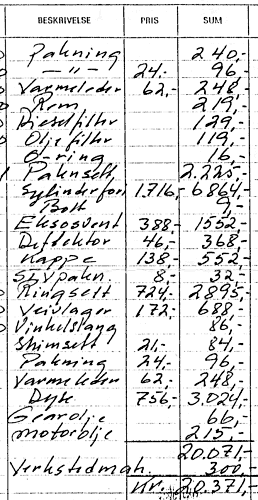 BESKRIVELSE PRIS SUM
Pakning 240,-
-"- 24,- 96,-
Varmeleder 62,- 248,-
Rem 219,-
Dieselfilter 129,-
Oljefilter 119,-
O-ring 16,-
Paknsett 2.225,-
Sylinderfor 1716,- 6864,-
Bolt 9,-
Eksosvent 388,- 1552,-
Deflektor 46,- 368,-
Kappe 138,- 552,-
Slvpakn. 8,- 32,-
Ringsett 724,- 2895,-
Veivlager 172,- 688,-
Vinkelslang 86,-
Shimsett 21,- 84,-
Pakning 24,- 96,-
Varmeleder 62,- 248,-
Dyse 756,- 3.024,-
Gearolje 66,-
motorolje 215,-
20.071,-
Verkstedmat. 300,-
kr. 20.371,-